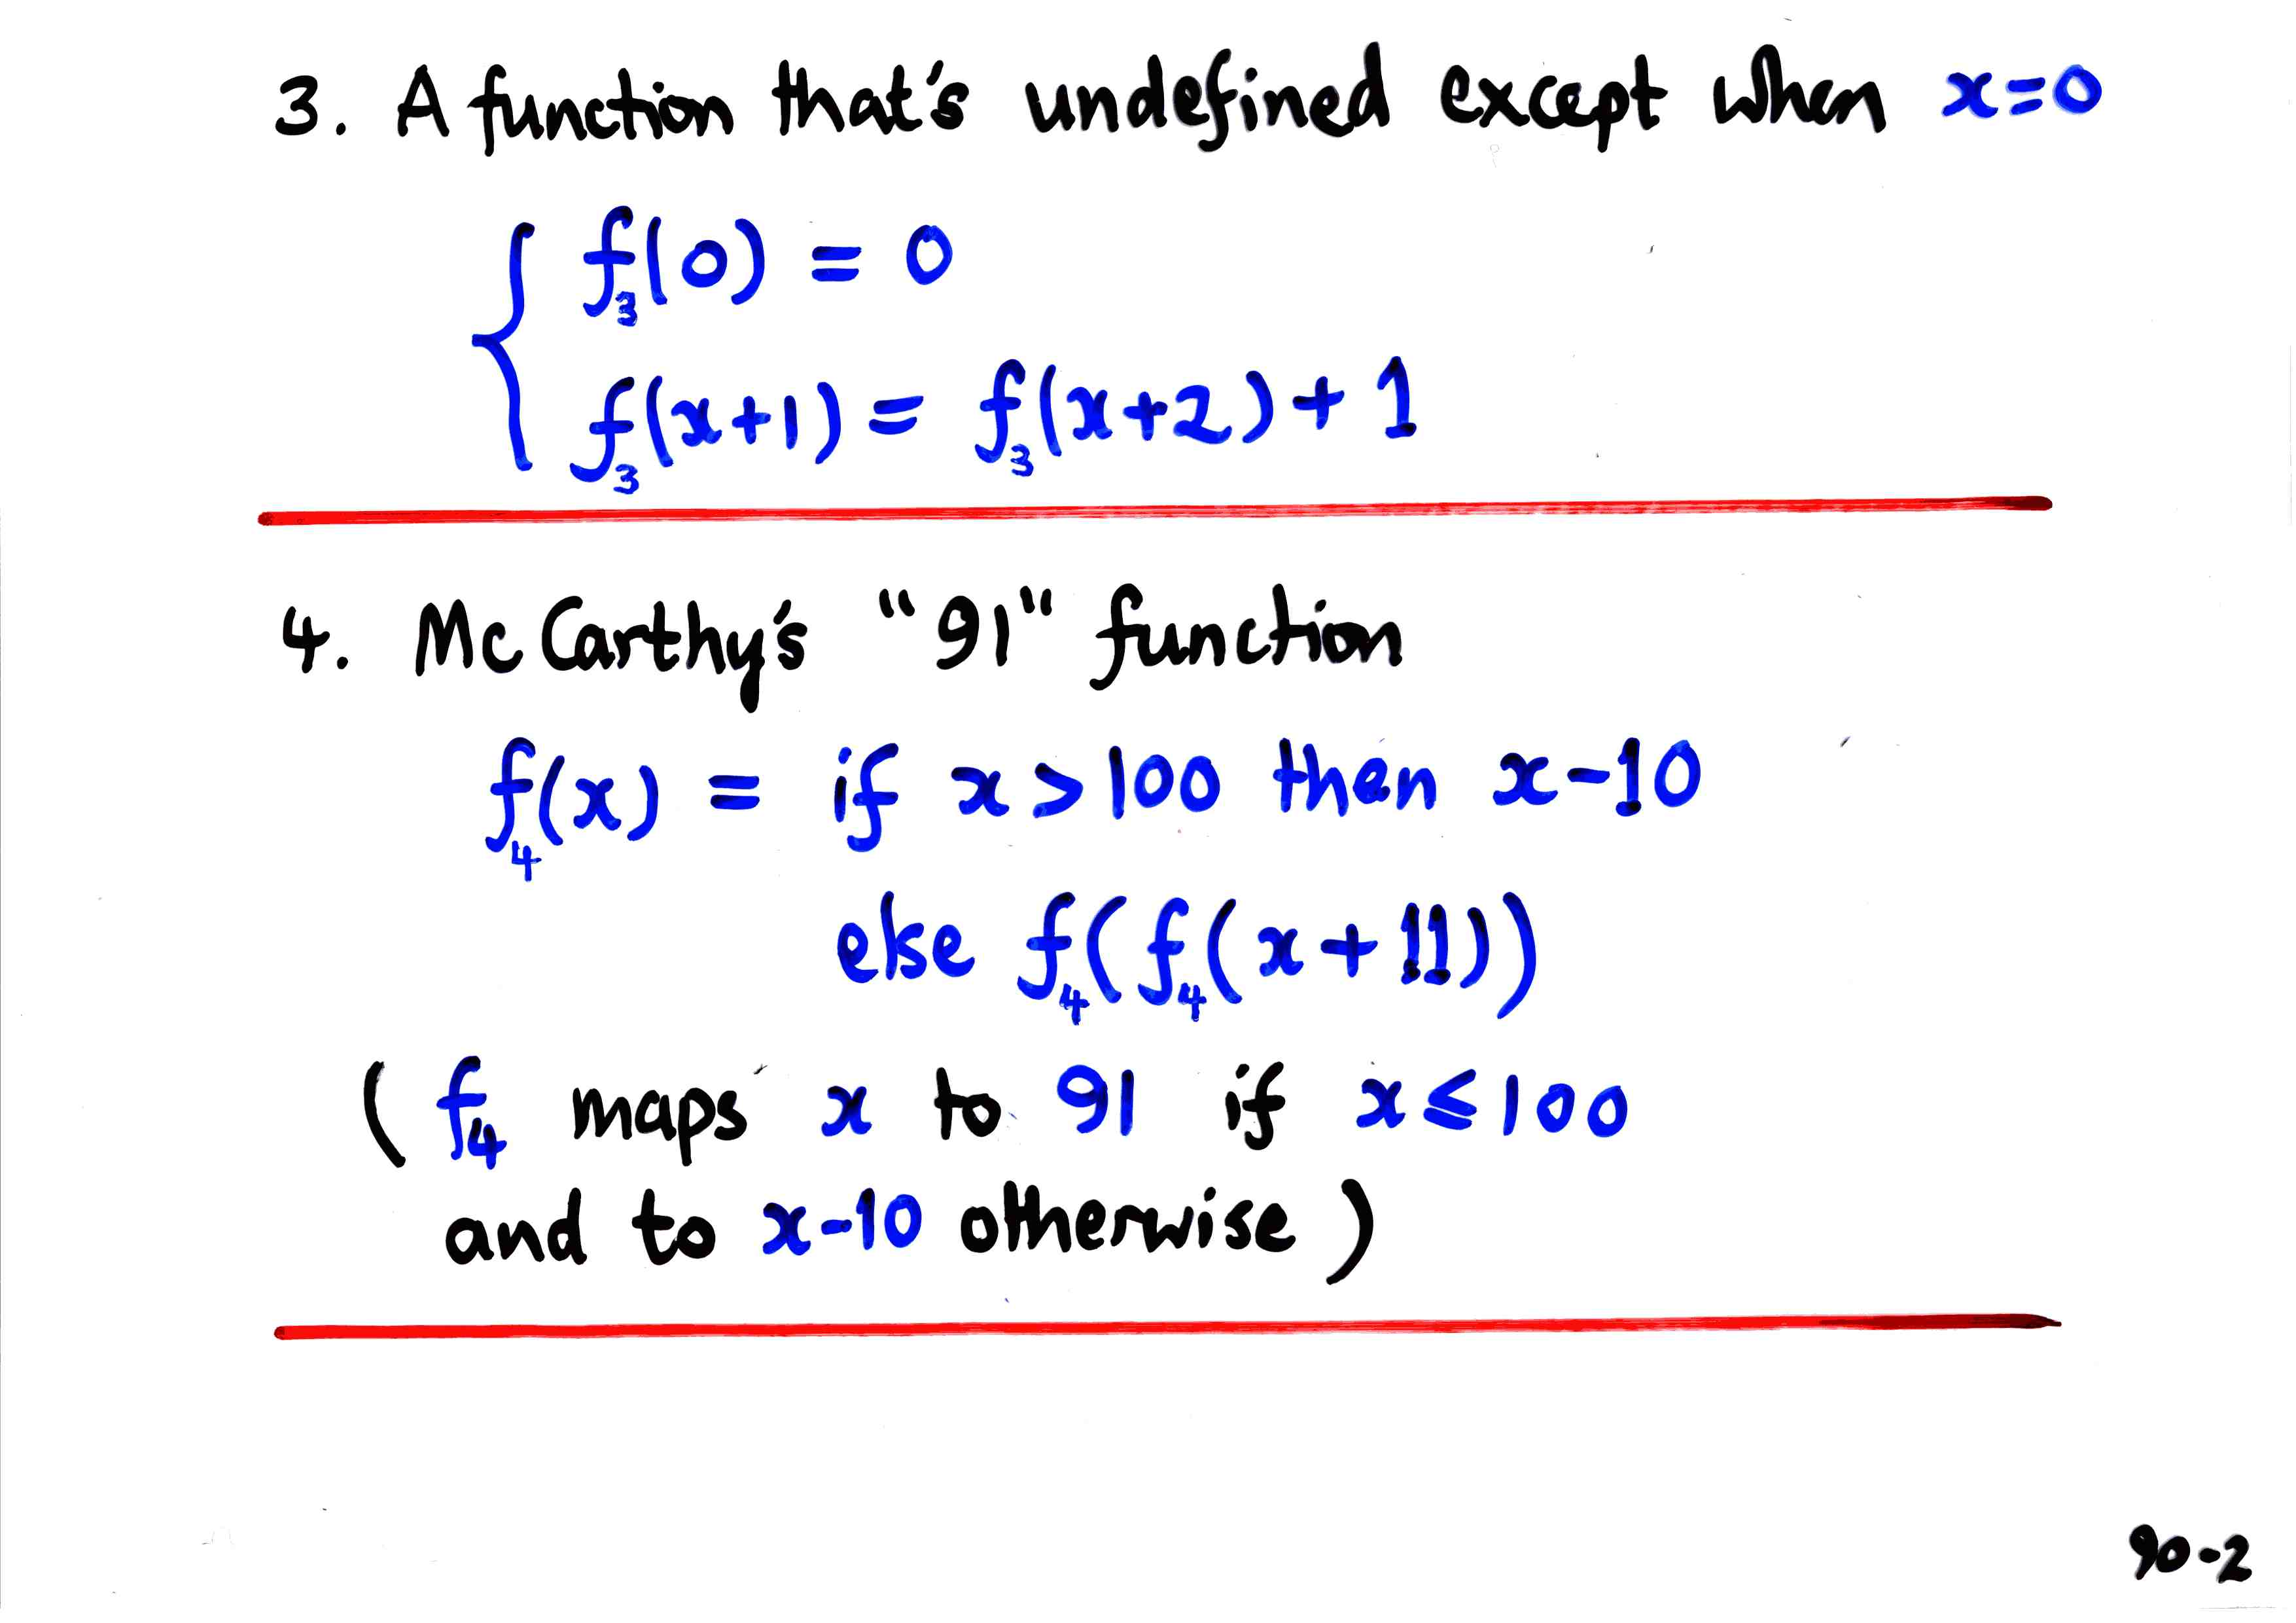 3. A function that's undefined except when x=0
f₃(0) = 0
f₃(x+1) = f₃(x+2)+1
4. McCarthy's "91" function
f₄(x) = if x>100 then x-10
else f₄(f₄(x+11))
(f₄ maps x to 91 if x≤100
and to x-10 otherwise)
90-2